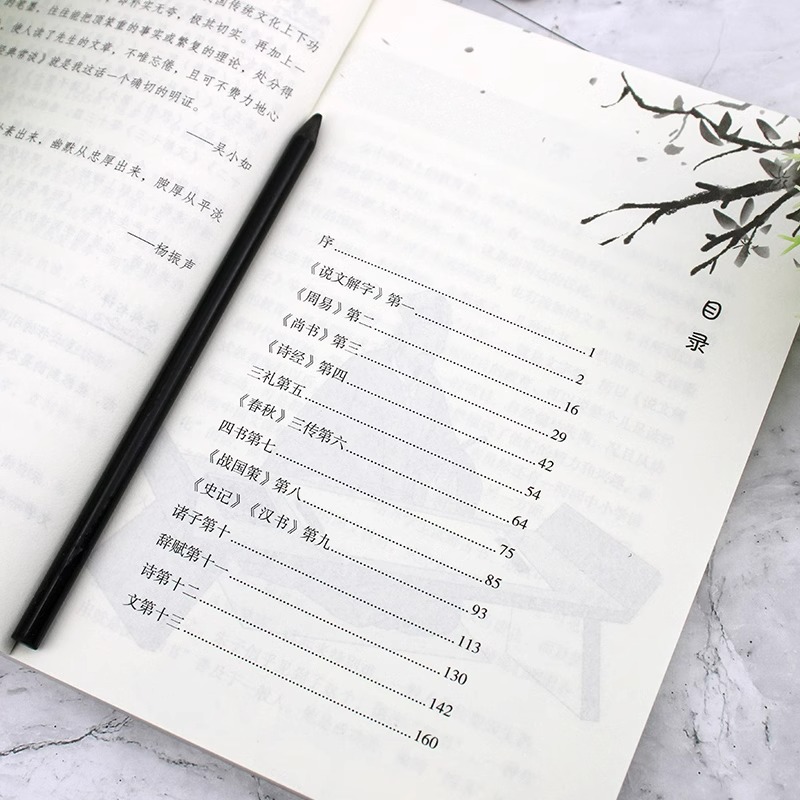 国传统文化上下功
朴实无奇，极其切实。再加上一
的笔墨，往往能把顶繁重的事实或繁复的理论，处分得
使人读了先生的文章，不唯忘倦，且可不费力地心
经典常谈》就是我这话一个确切的明证。
——吴小如
素出来，幽默从忠厚出来，腴厚从平淡
——杨振声
目录
序……1
《说文解字》第一……2
《周易》第二……16
《尚书》第三……29
《诗经》第四……42
三礼第五……54
《春秋》三传第六……64
四书第七……75
《战国策》第八……85
《史记》《汉书》第九……93
诸子第十……113
辞赋第十一……130
诗第十二……142
文第十三……160